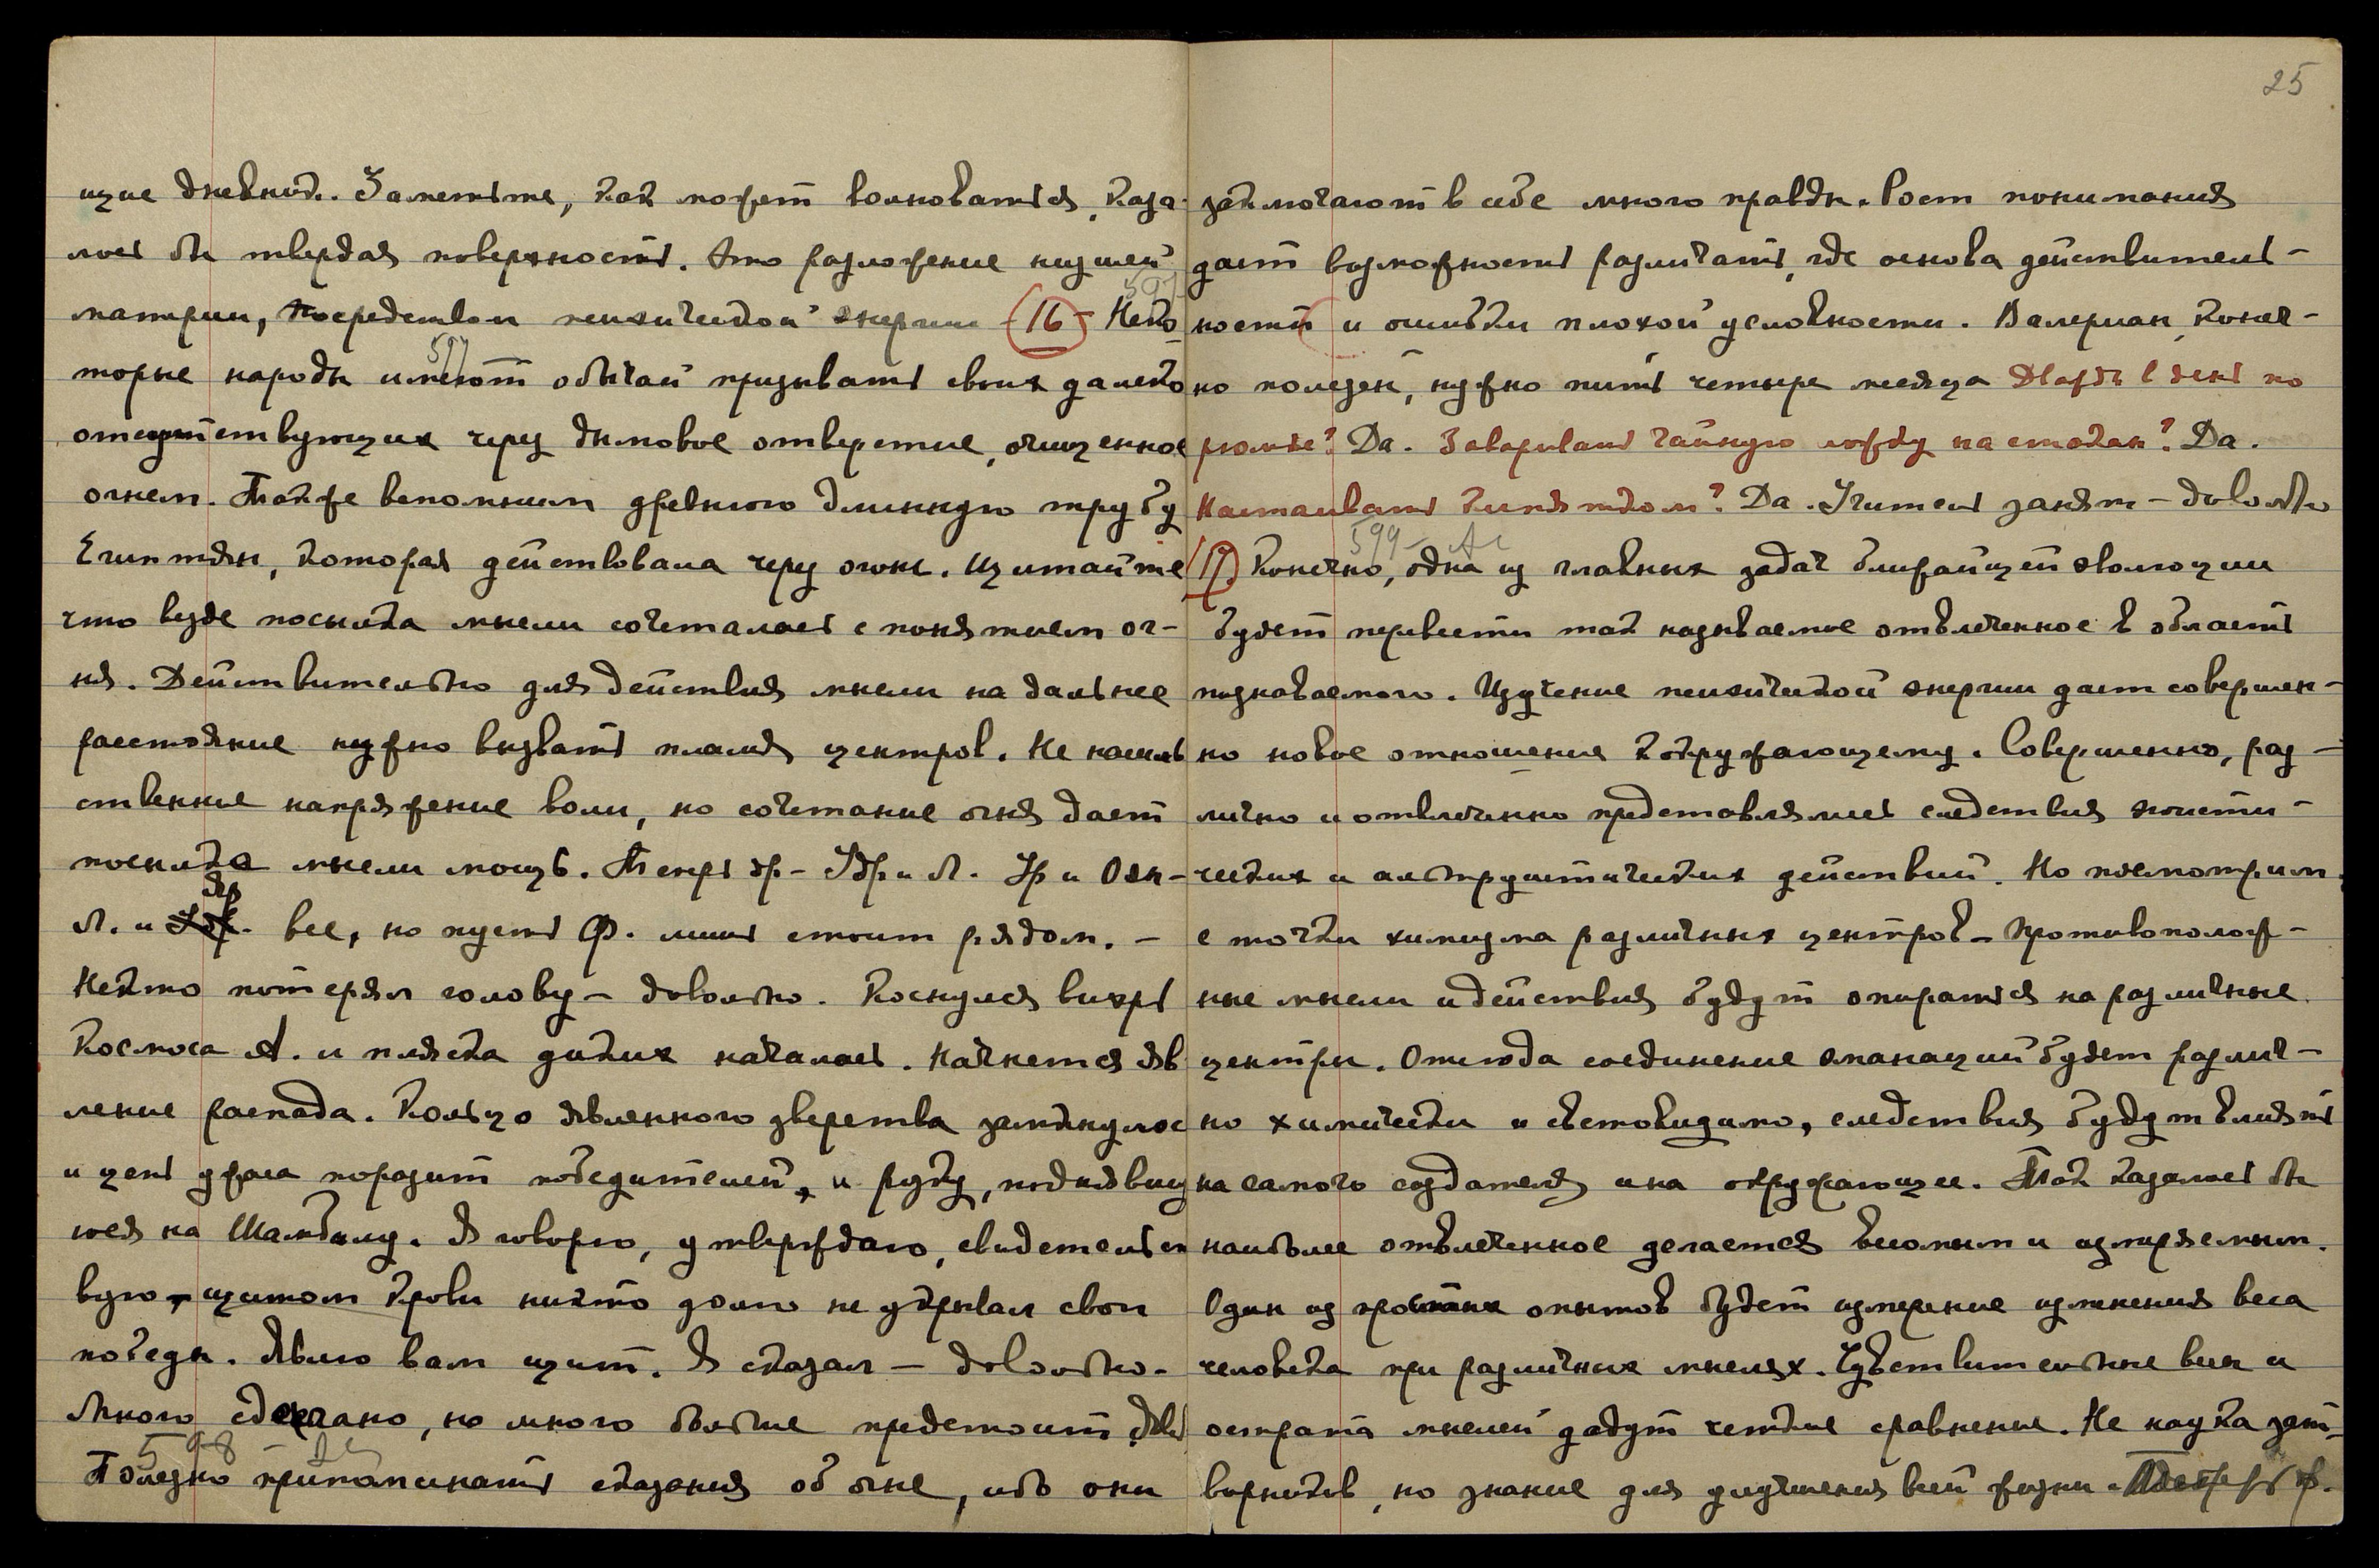 щие дневник. Заметьте, как может волноваться, каза-
лось бы твердая поверхность. Это разложение низшей
матери, посредством психической энергии (16 – Неко-
597
торые народы имеют обычай призывать своих далеко
597
отсутствующих через дымовое отверстие, очищенное
огнем. Также вспомним древнюю длинную трубу
Египтян, которая действовала через огонь. Изитайте
что везде посылка мысли сочеталась с понятием ог-
ня. Действительно для действия мысли на дальнее
расстояние нужно вызвать пламя центров. Не насиль
ственное напряжение воли, но сочетание огня дает
посылке мысли мощь. Теперь
Л. и все, но пусть Ф. лишь стоит рядом. –
Некто потерял голову – довольно. Коснулся вихрь
Космоса А. и пляска диких началась. Начнется яв
ление распада. Кольцо явленного зверства замкнулос
и цепь ужаса поразит победителей, и руку, поднявшу
юся на Шамбалу. Я говорю, утверждаю, свидетельст
вую, щитом крови никто долго не укрывал свои
победы. Явлю вам щит. Я сказал – довольно.
Много сделано, но много больше предстоит
598
Полезно припоминать сказания об огне, ибо они
25
заключают в себе много правды. Рост понимания
дает возможность различать, где основа действитель-
ности и ошибки плохой условности. Валериан, конеч-
но полезен, нужно пить четыре месяца Дважды в день по
рюмке? Да. Заваривать чайную ложку на стакан? Да.
Настаивать кипятком? Да. Учитель занят – довольно
599
17) Конечно, одна из главных задач ближайшей эволюции
будет перевести так называемое отвлеченное в область
познаваемого. Изучение психической энергии дает совершен-
но новое отношение к окружающему. Совершенно, раз-
лично и отвлеченно представлялись следствия эгоисти-
ческих и альтруистических действий. Но посмотрим
с точки химизма различных центров – Противополож-
ные мысли и действия будут опираться на различные
центры. Отсюда соединение эманаций будет различ-
но химически и световидимо, следствия будут влиять
на самого создателя и на окружающее. Так казалось бы
наиболее отвлеченное делается весомым и измеряемым.
Один из простых опытов будет измерение изменения веса
человека при различных мыслях. Чувствительные весы и
острота мыслей дадут четкие сравнения. Не наука зат-
ворников, но знание для улучшения всей жизни.